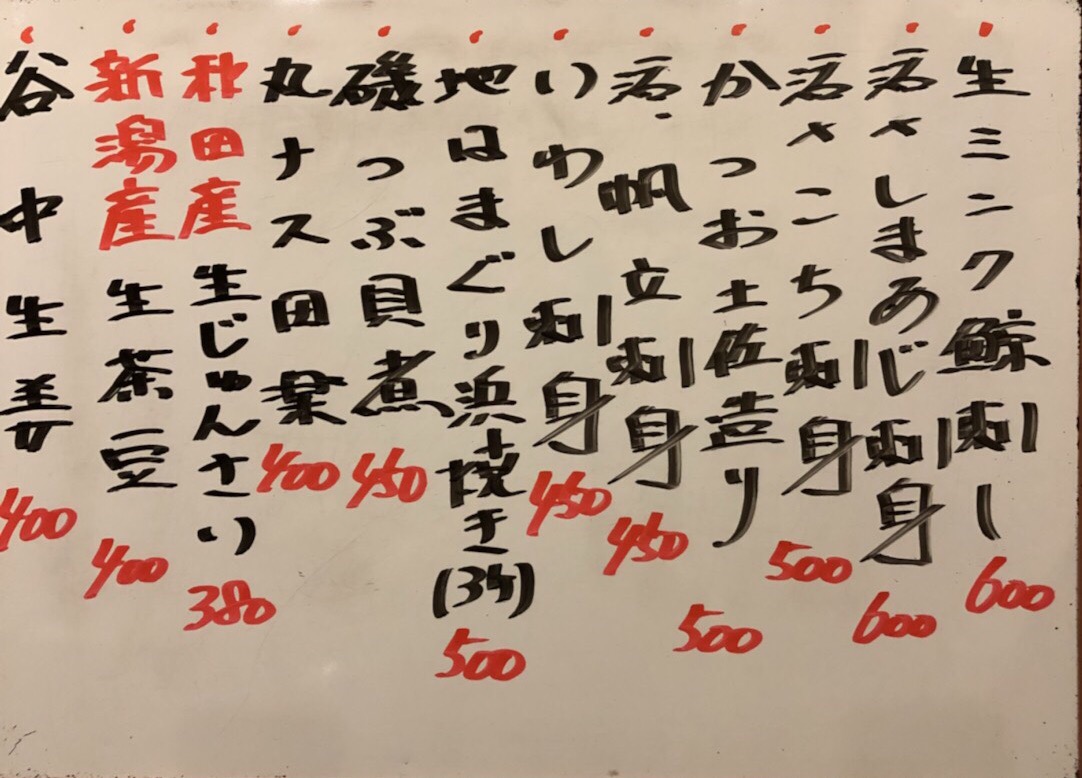 生ミンク鯨刺し 600
活〆しまあじ刺身 600
活〆こち刺身 500
かつお土佐造り 500
活・帆立刺身 450
いわし刺身 450
地はまぐり浜焼き(3ケ) 500
磯つぶ貝煮 450
丸ナス田楽 400
秋田産 生じゅんさい 380
新潟産 生茶豆 400
谷中生姜 400